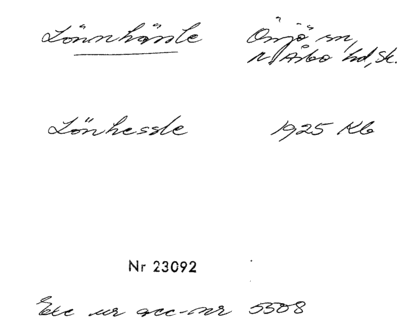 Lönnhäsle Örsjö sn,
N Åsbo hd, Sk.
Lönhessle 1925 Kb
Nr 23092
Exc ur acc-nr 5508